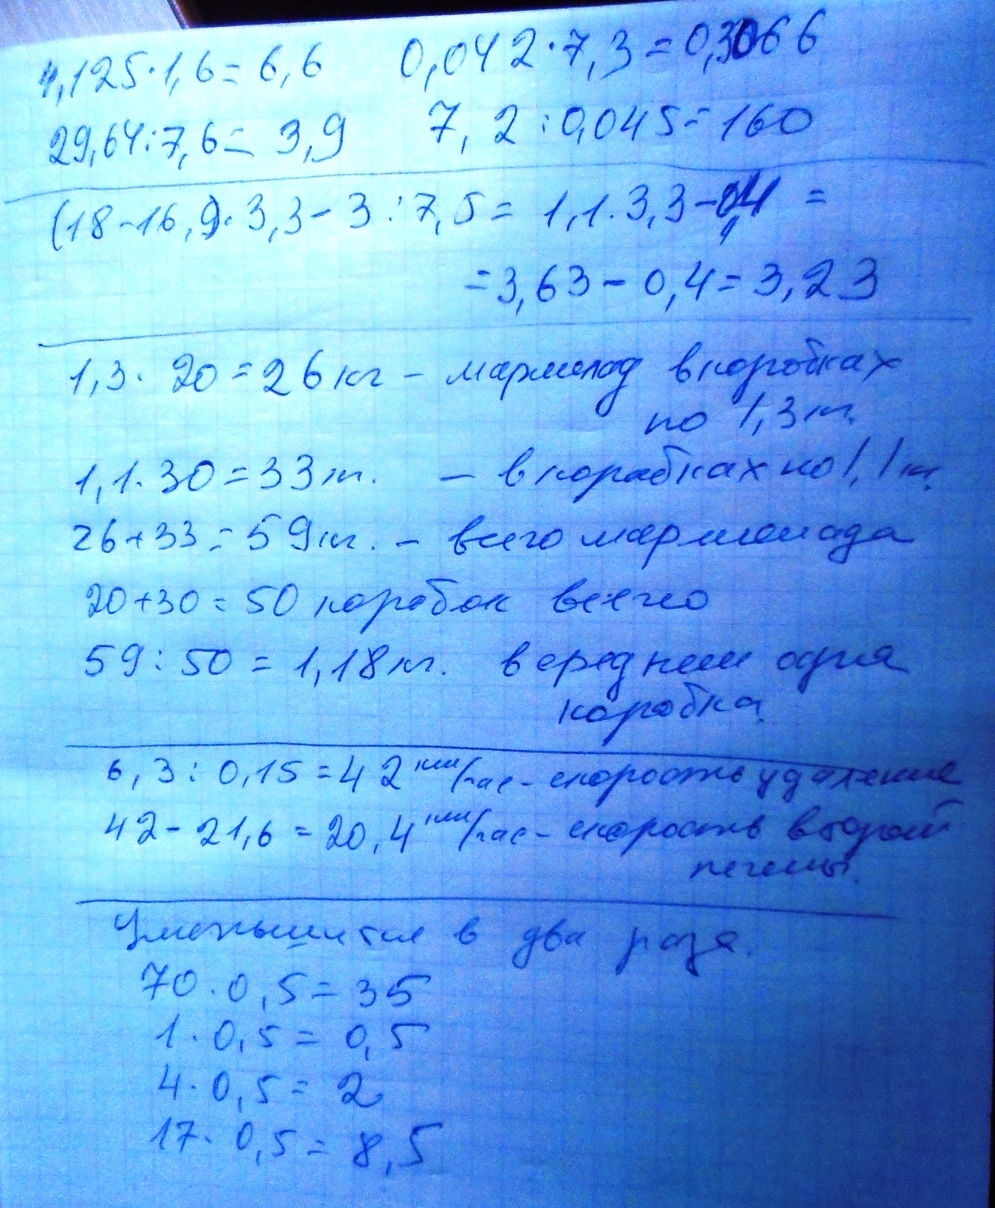 4,125·1,6=6,6 0,042·7,3=0,3066
29,64:7,6=3,9 7,2:0,045=160
(18-16,9)·3,3-3:7,5=1,1·3,3-0,4=
=3,63-0,4=3,23
1,3·20=26кг - мармелад в коробках
по 1,3кг.
1,1·30=33кг. - в корабках по 1,1кг.
26+33=59кг. - всего мармелада
20+30=50 коробок всего
59:50=1,18кг. в среднем одна
коробка.
6,3:0,15=42км/час-скорость удаление
42-21,6=20,4км/час-скорость второй
Уменьшится в два раза.
70·0,5=35
1·0,5=0,5
4·0,5=2
17·0,5=8,5